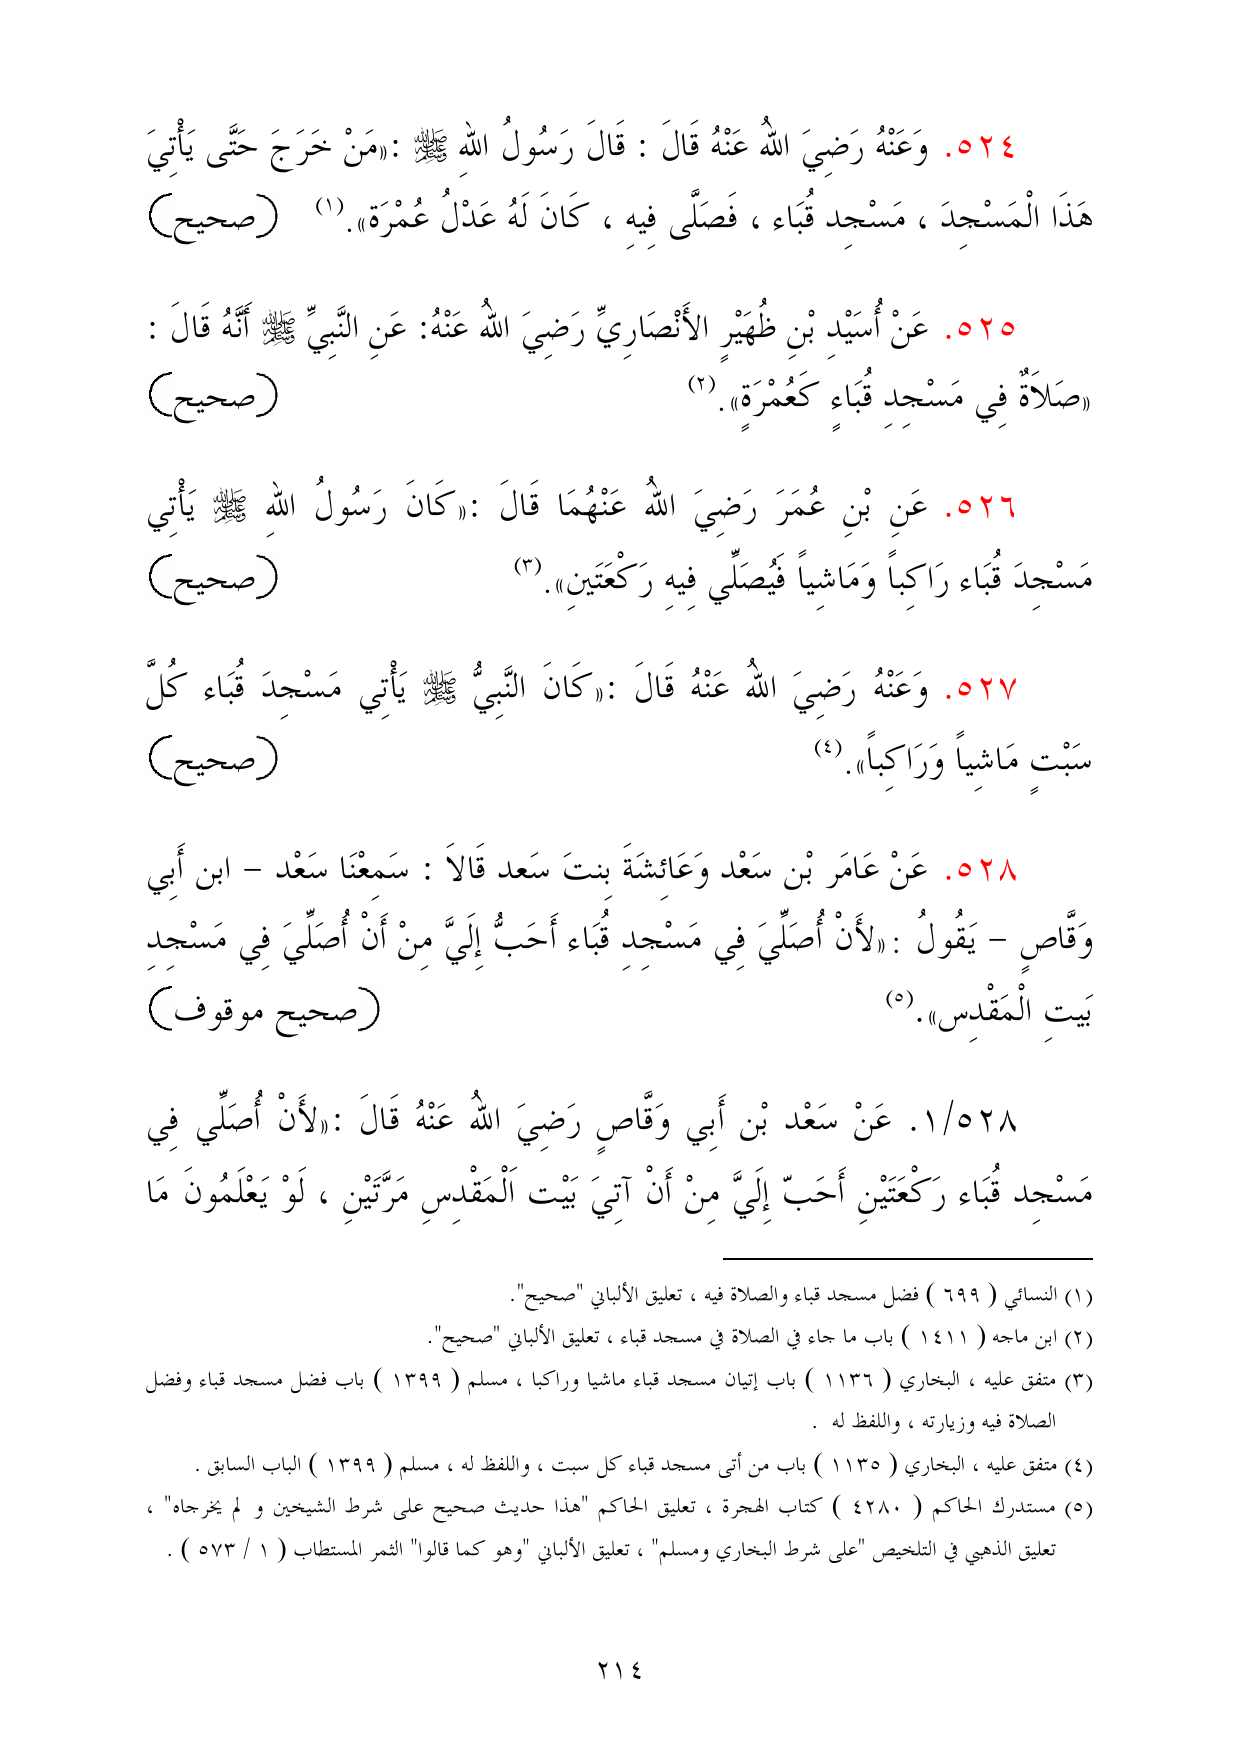 ٥٢٤. وَعَنْهُ رَضِيَ اللهُ عَنْهُ قَالَ : قَالَ رَسُولُ اللهِ ﷺ :«مَنْ خَرَجَ حَتَّى يَأْتِيَ
هَذَا الْمَسْجِدَ ، مَسْجِد قُبَاء ، فَصَلَّى فِيهِ ، كَانَ لَهُ عَدْلُ عُمْرَة».(١) (صحيح)
٥٢٥. عَنْ أُسَيْدِ بْنِ ظُهَيْرٍ الأَنْصَارِيِّ رَضِيَ اللهُ عَنْهُ: عَنِ النَّبِيِّ ﷺ أَنَّهُ قَالَ :
«صَلاَةٌ فِي مَسْجِدِ قُبَاءٍ كَعُمْرَةٍ».(٢) (صحيح)
٥٢٦. عَنِ بْنِ عُمَرَ رَضِيَ اللهُ عَنْهُمَا قَالَ :«كَانَ رَسُولُ اللهِ ﷺ يَأْتِي
مَسْجِدَ قُبَاء رَاكِباً وَمَاشِياً فَيُصَلِّي فِيهِ رَكْعَتَينِ».(٣) (صحيح)
٥٢٧. وَعَنْهُ رَضِيَ اللهُ عَنْهُ قَالَ :«كَانَ النَّبِيُّ ﷺ يَأْتِي مَسْجِدَ قُبَاء كُلَّ
سَبْتٍ مَاشِياً وَرَاكِباً».(٤) (صحيح)
٥٢٨. عَنْ عَامَر بْن سَعْد وَعَائِشَةَ بِنتَ سَعد قَالاَ : سَمِعْنَا سَعْد – ابن أَبِي
وَقَّاصٍ – يَقُولُ :«لأَنْ أُصَلِّيَ فِي مَسْجِدِ قُبَاء أَحَبُّ إِلَيَّ مِنْ أَنْ أُصَلِّيَ فِي مَسْجِدِ
بَيتِ الْمَقْدِس».(٥) (صحيح موقوف)
١/٥٢٨. عَنْ سَعْد بْن أَبِي وَقَّاصٍ رَضِيَ اللهُ عَنْهُ قَالَ :«لأَنْ أُصَلِّي فِي
مَسْجِد قُبَاء رَكْعَتَيْنِ أَحَبّ إِلَيَّ مِنْ أَنْ آتِيَ بَيْت اَلْمَقْدِسِ مَرَّتَيْنِ ، لَوْ يَعْلَمُونَ مَا
(١) النسائي ( ٦٩٩ ) فضل مسجد قباء والصلاة فيه ، تعليق الألباني "صحيح".
(٢) ابن ماجه ( ١٤١١ ) باب ما جاء في الصلاة في مسجد قباء ، تعليق الألباني "صحيح".
(٣) متفق عليه ، البخاري ( ١١٣٦ ) باب إتيان مسجد قباء ماشيا وراكبا ، مسلم ( ١٣٩٩ ) باب فضل مسجد قباء وفضل
الصلاة فيه وزيارته ، واللفظ له .
(٤) متفق عليه ، البخاري ( ١١٣٥ ) باب من أتى مسجد قباء كل سبت ، واللفظ له ، مسلم ( ١٣٩٩ ) الباب السابق .
(٥) مستدرك الحاكم ( ٤٢٨٠ ) كتاب الهجرة ، تعليق الحاكم "هذا حديث صحيح على شرط الشيخين و لم يخرجاه" ،
تعليق الذهبي في التلخيص "على شرط البخاري ومسلم" ، تعليق الألباني "وهو كما قالوا" الثمر المستطاب ( ١ / ٥٧٣ ) .
٢١٤